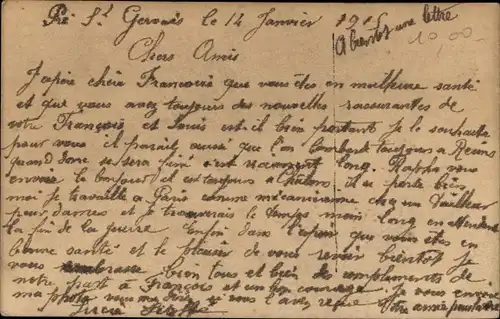 Pré St Gervais le 14 Janvier 191
A bientot une lettre
10,00-
Chers Amis
J'espère chère Françoise que vous êtes en meilleure santé
et que vous avez toujours des nouvelles rassurantes de
votre François et Louis est il bien portant je le souhaite
pour vous il parait aussi que l'on bombarde toujours a Reims
quand donc se sera fini c'est vraiment long. Rapha vous
envoie le bonjour il est toujours a Chalons il se porte bien
moi je travaille a Paris comme mécanicienne chez un Tailleur
pour dames et je trouverais le temps moin long en attendant
la fin de la guerre Enfin dans l'espoir que vous êtes en
bonne santé et le plaisir de vous revoir bientot je
vous embrasse bien tous et bien de compliments de
notre part à François et un bon courage Je vous envoie
ma photo vous me direz si vous l'avez reçue Votre amie pour la vie
Lucie